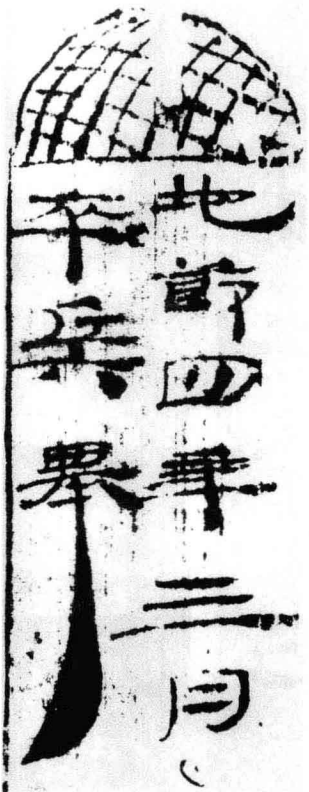 地節四年三月
卒兵舉